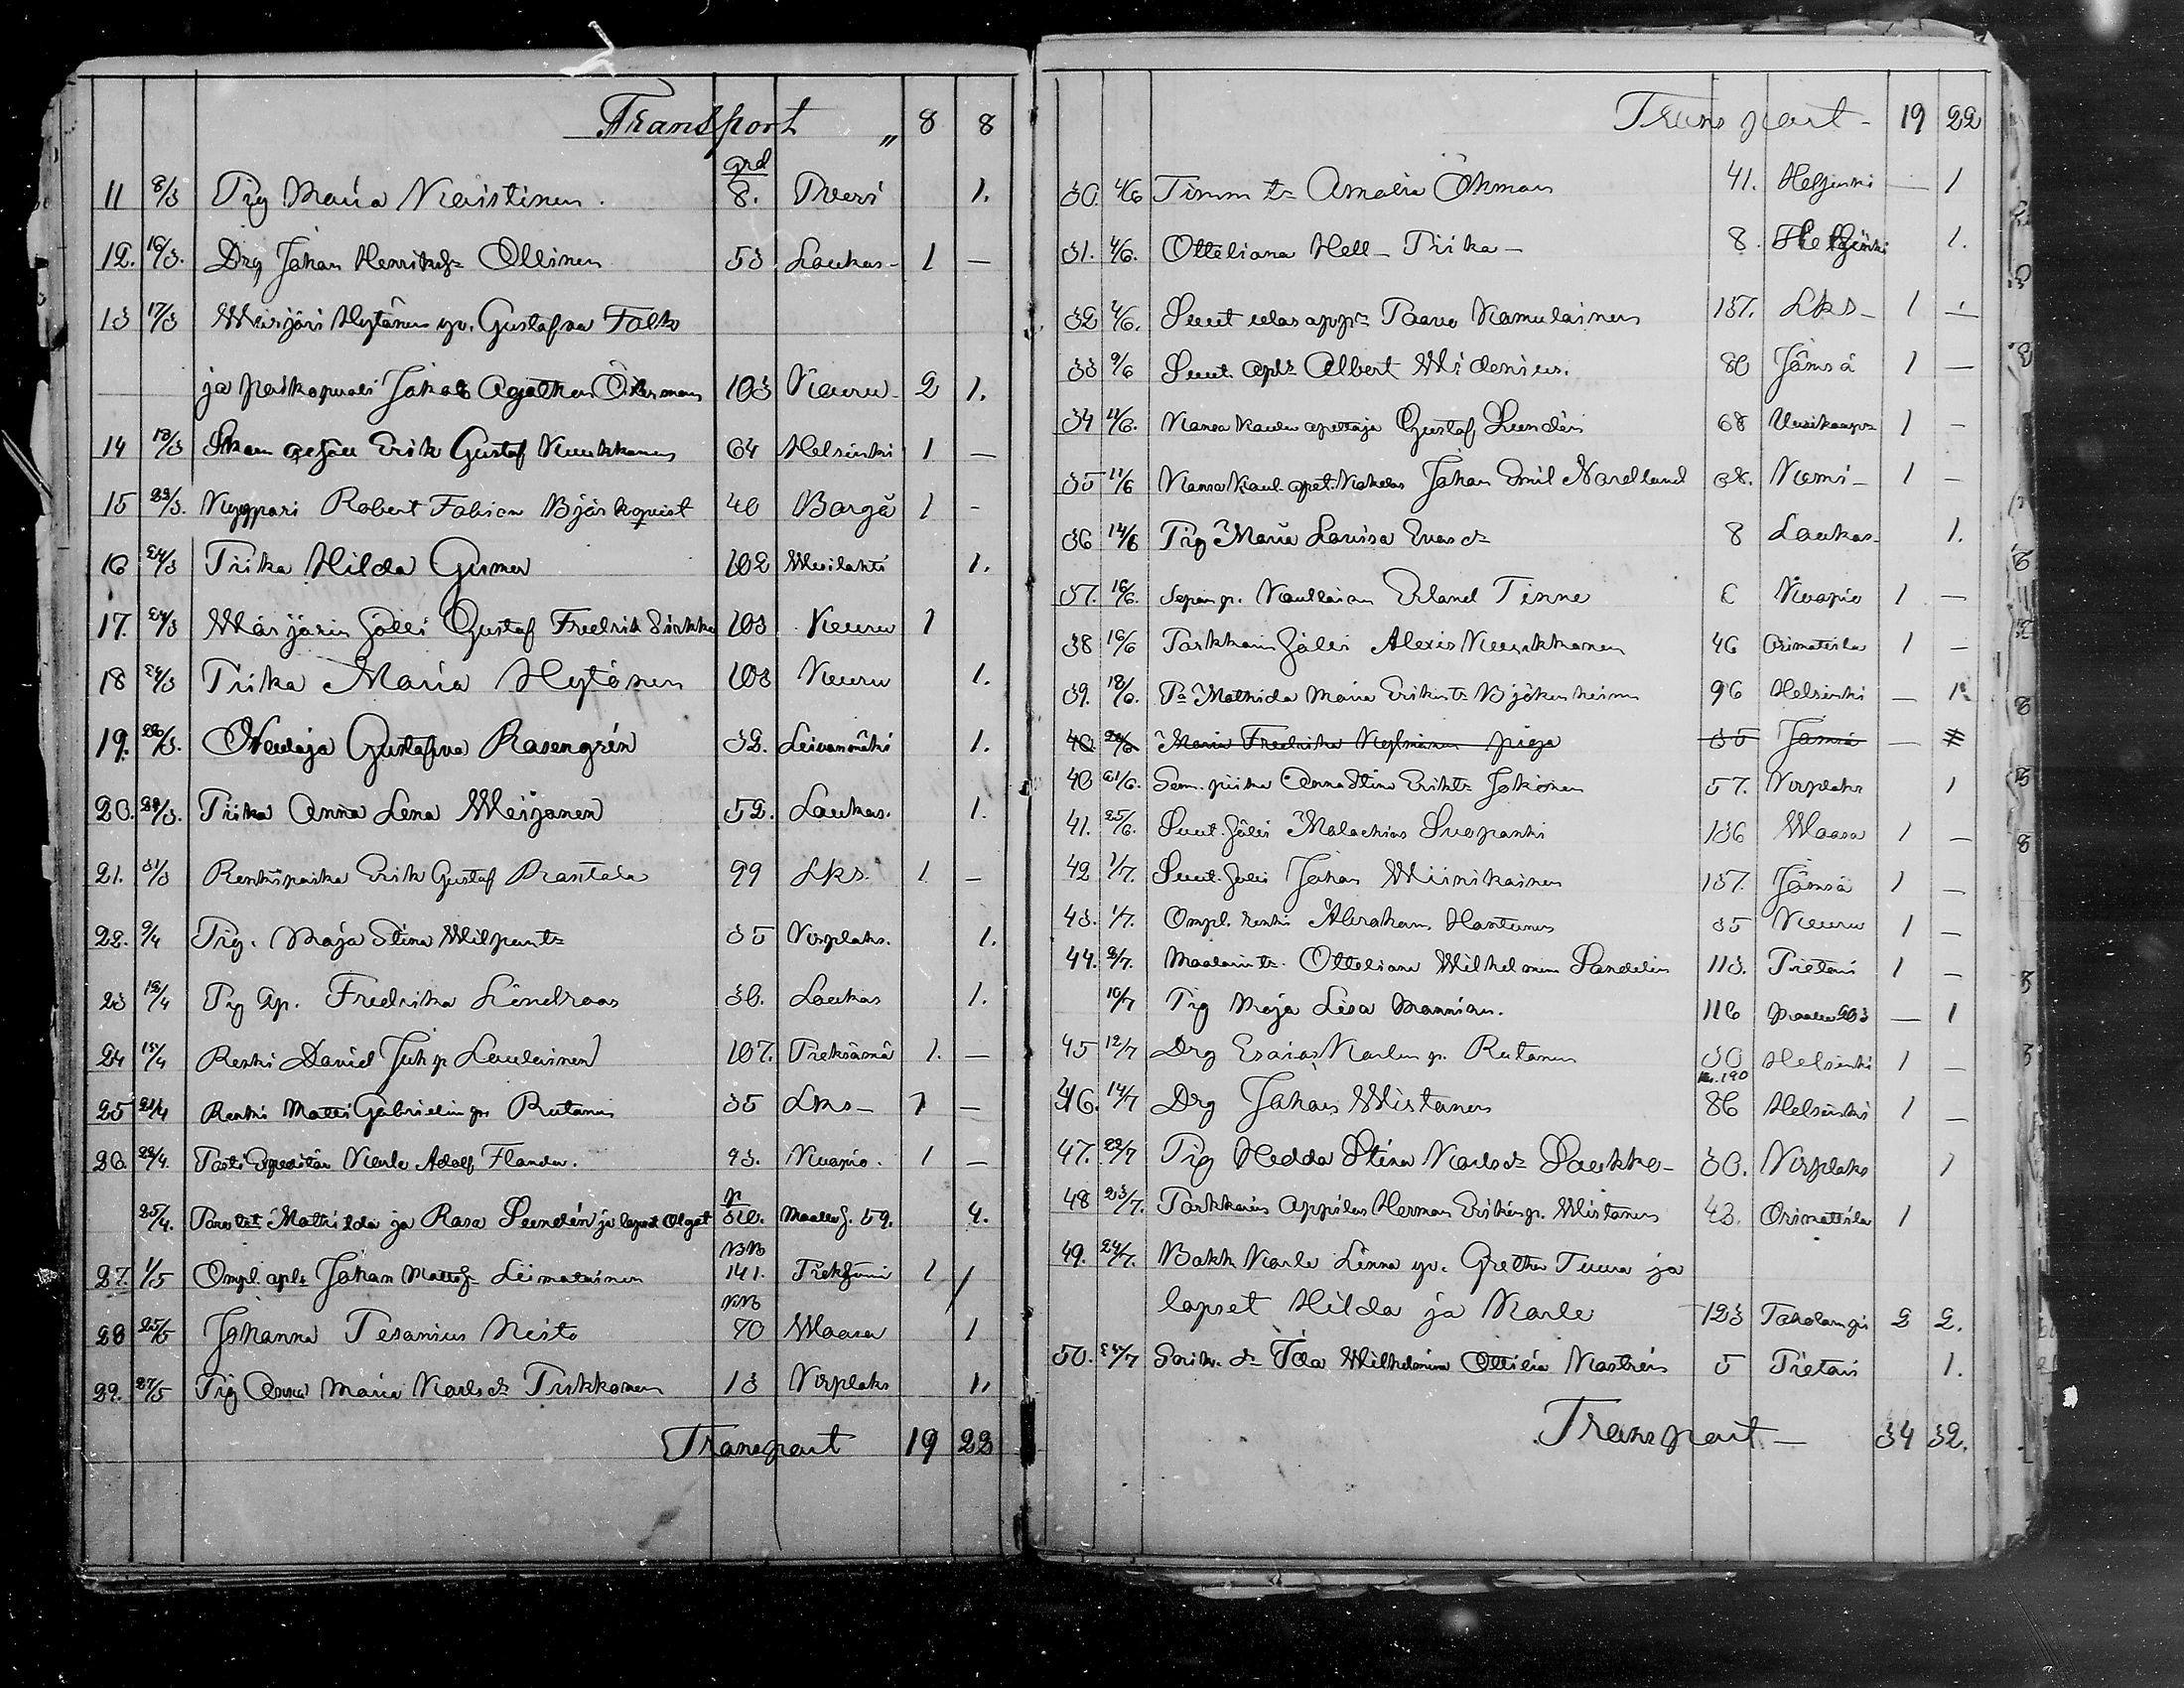 Transport „ 8 8
11 8/3 Pig Maria Kaistinen. grd 8. Pveri 1.
12. 16/3. Drg Johan Henriksp Ollinen 53 Laukas- 1 —
13 17/3 Värjäri Hytönen gv. Gustafva Falk
ja poikapuoli Jakob Agathon Öhrman 103 Keuru- 2 1.
14 18/3 Erik Gustaf Kuukkanen 64 Helsinki 1 —
15 23/3. Nyppari Robert Fabian Björkqvist 40 Borgå 1 -
16 24/3 Piika Hilda Gumer 102 Muilahti 1.
17. 24/3 Värjärin Gustaf Fredrik 103 Keuru 1
18 24/3 Piika Maria Hytönen 103 Keuru 1.
19. 26/3. Neulaja Gustafva Rosengrén 32. Leivonmäki 1.
20. 28/3. Piika Anna Lena Weijanen 52. Laukas. 1.
21. 31/3 Renkipoika Erik Gustaf Rantala 99 Lks. 1. —
22. 9/4 Pig. Maja Stina Wilpunts 35 Virplaks. 1.
23 12/4 Pig Ap. Fredrika Lindroos 36. Laukas 1.
24 15/4 Renki David Juh p Laulainen 107. Pieksämä 1. —
25 21/4 Renki Matti Gabrielin p Rutanen 35 Lks- 1 —
26. 22/4. Posti Expeditör Karle Adolf Flander. 93. Kuopio. 1 —
25/4. Mathilda ja Rosa Lundén ja lapset Olga p 4.
27. 1/5 Ompl. apls Johan Mattsp Liimatainen NB 141. 1 /
28 25/5 Johanna Tesanius Neito NB 70 Waasa 1
29. 27/5 Pig Anna Maria Karls d: Pirkkonen 13 Virplaks 1.
Transport 19 22
Transport - 19 22
30. 4/6 Timm tr Amalia Öhman 41. Helsinki — 1
31. 4/6. Otteliana Hell - Piika - 8. Helsinki 1.
32 4/6. Suut Paavo Kamulainen 137. Lks- 1 —
33 9/6 Suut. apl: Albert Widenius. 80 Jämsä 1 —
34 11/6. Kansa koulu opettaja Gustaf Lundén 68 Uusikaup: 1 —
35 11/6 Kansa koul. opet. Kokelas Johan Emil Nordlund 68. Kemi- 1 -
36 14/6 Pig Maria Lovisa Evas d: 8 Laukas- 1.
37. 16/6. Sepän p. Kaullaian Erland Tinne 6 Kuopio 1 —
38 16/6 Parkkarin Alexis Kuukkanen 46 Orimattila 1 —
39. 18/6. Pa Mathida Maria Erikints Björkenheim 96 Helsinki — 1.
40 20/6 Maria Fredrika piga 35 Jämsä —
40 21/6. Sem. piika Anna Stina Erikts Jokinen 57. Virplaks 1
41. 25/6. Suut. Malachias Suopanki 136 Waasa 1 —
42 1/7. Suut. Johan Wiinikainen 137. Jämsä 1 —
43. 1/7. Ompl. renki Abraham Hantunen 35 Keuru 1 —
44. 2/7. Maalarin tr. Otteliana Wilhelmina Sandelin 113. Pietari 1 —
10/7 Pig Maja Lisa Manninen. 116 Maalu 203 — 1
45 12/7 Drg Esaias Karlin p. Rutanen 30 Helsinki 1 —
46. 14/7 Drg Johan Wistanen 190 86 Helsinki 1 —
47. 22/7 Pig Hedda Stina Karls d: Saukko- 30. Virplaks 1
48 23/7. Parkkarin Appilas Herman Erikin p. Wistanen 43. Orimattila 1
49. 24/7. Bokh Karle Linna gv. Gretha Tuura ja
lapset Hilda ja Karle 123 Takolampi 2 2.
50. 31/7 d: Ida Wilhelmina Ottilia Kastrén 5 Pietari 1.
Transport — 34 32.